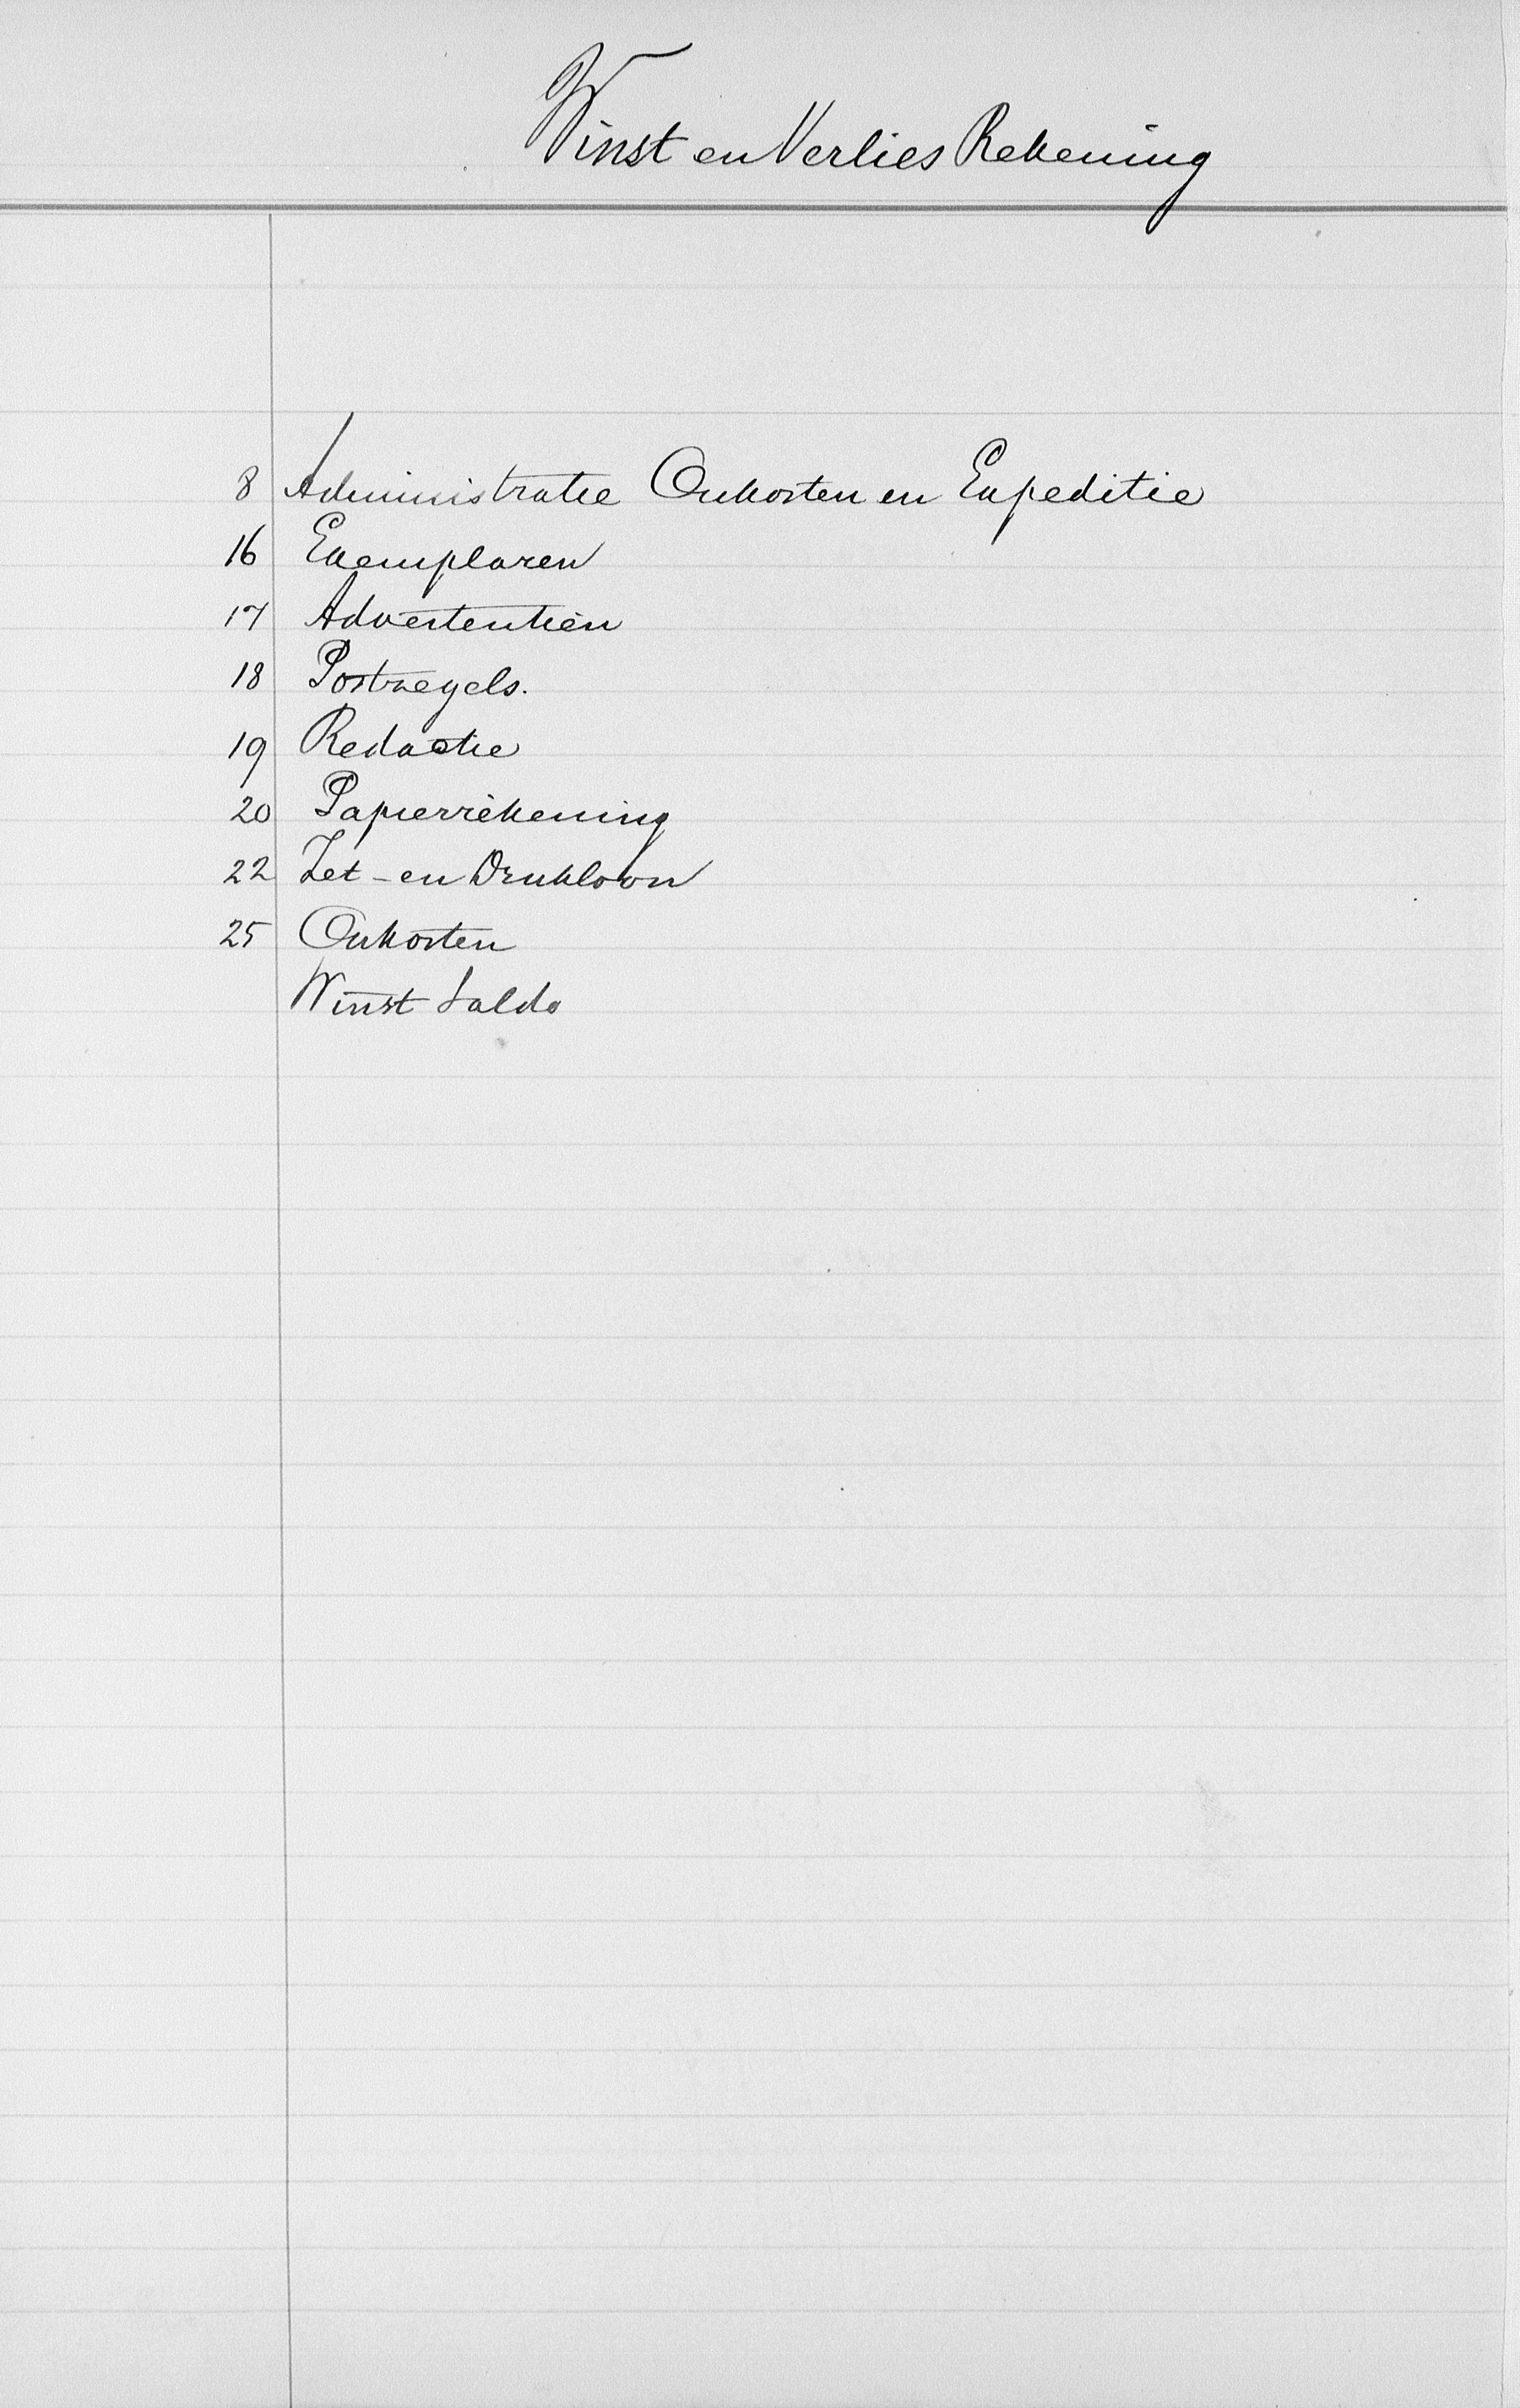 Winst en Verlies Rekening
8 Administratie Onkosten en Expeditie
16 Exemplaren
17 Advertentiën
18 Postzegels.
19 Redactie
20 Papierrekening
22 Zet- en Drukloon
25 Onkosten
Winst Saldo